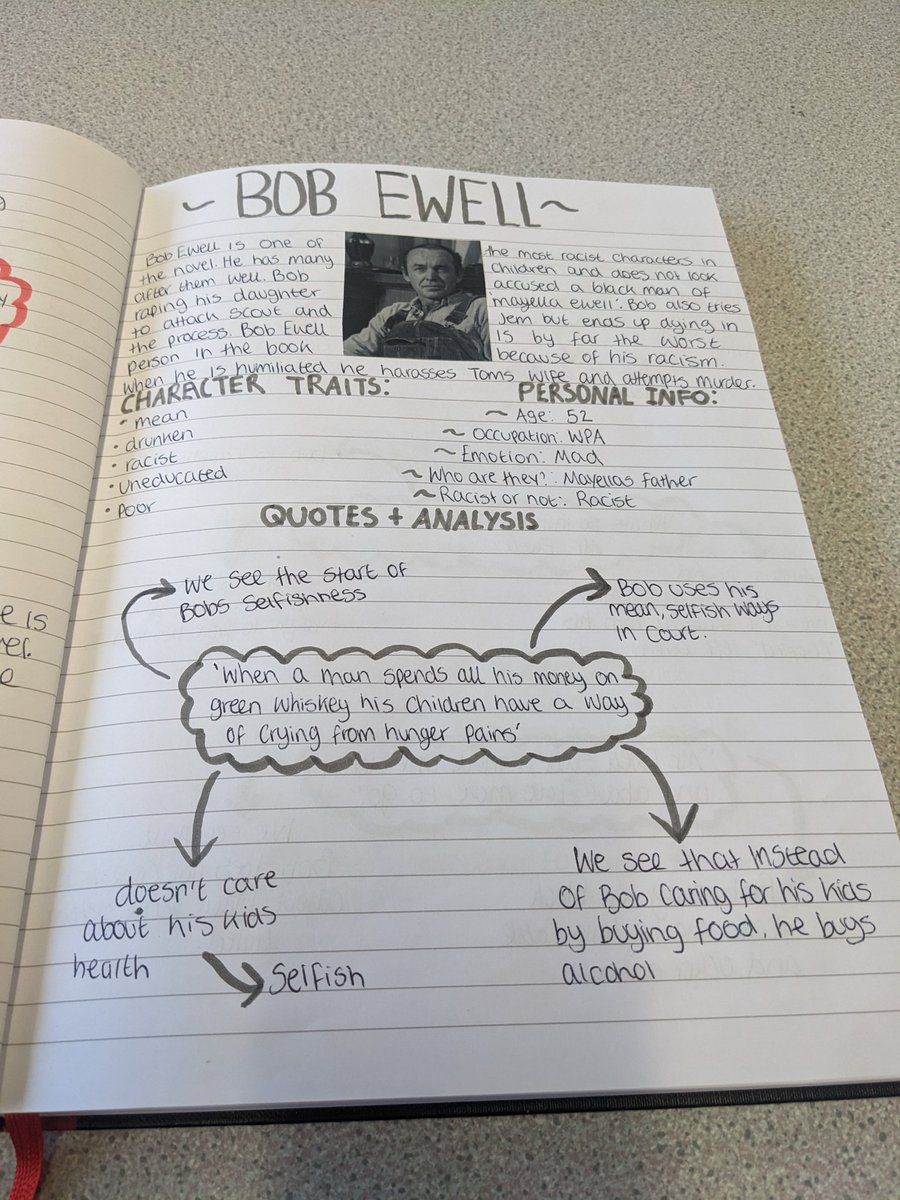 ~ BOB EWELL ~
Bob Ewell is one of the most racist characters in
the novel. He has many children and does not look
after them well. Bob accused a black man of
raping his daughter 'mayella ewell'. Bob also tries
to attack scout and Jem but ends up dying in
the process. Bob Ewell is by far the worst
person in the book because of his racism.
When he is humiliated he harasses Toms wife and attempts murder.
CHARACTER TRAITS:
• mean
• drunken
• racist
• uneducated
• poor
PERSONAL INFO:
~ Age: 52
~ Occupation: WPA
~ Emotion: Mad
~ Who are they?: Mayellas father
~ Racist or not: Racist
QUOTES + ANALYSIS
We see the start of
Bobs selfishness
Bob uses his
mean, selfish ways
in court.
'When a man spends all his money on
green whiskey his children have a way
of crying from hunger pains'
doesn't care
about his kids
health
Selfish
We see that instead
of Bob caring for his kids
by buying food, he buys
alcohol